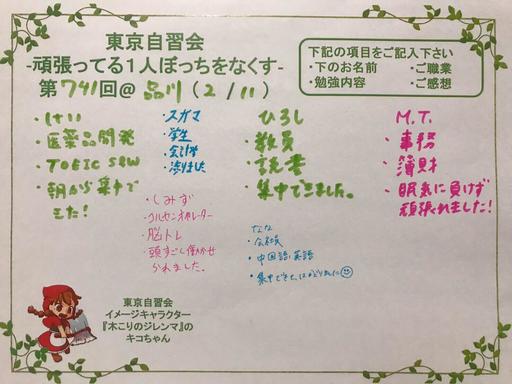 東京自習会
-頑張ってる1人ぼっちをなくす-
第741回@ 品川 (2/11)
下記の項目をご記入下さい
・下のお名前 ・ご職業
・勉強内容 ・ご感想
・けい
・医薬品開発
・TOEIC S&W
・朝から集中で
きた!
・スガマ
・学生
・会計学
・しみず
・コールセンターオペレーター
・脳トレ
・頭すごし働かせ
られました。
ひろし
・教員
・読書
・集中できました。
なな
・会社員
・中国語・英語
M.T.
・事務
・簿財
・眠気に負けず
頑張れました!
東京自習会
イメージキャラクター
『木こりのジレンマ』の
キコちゃん